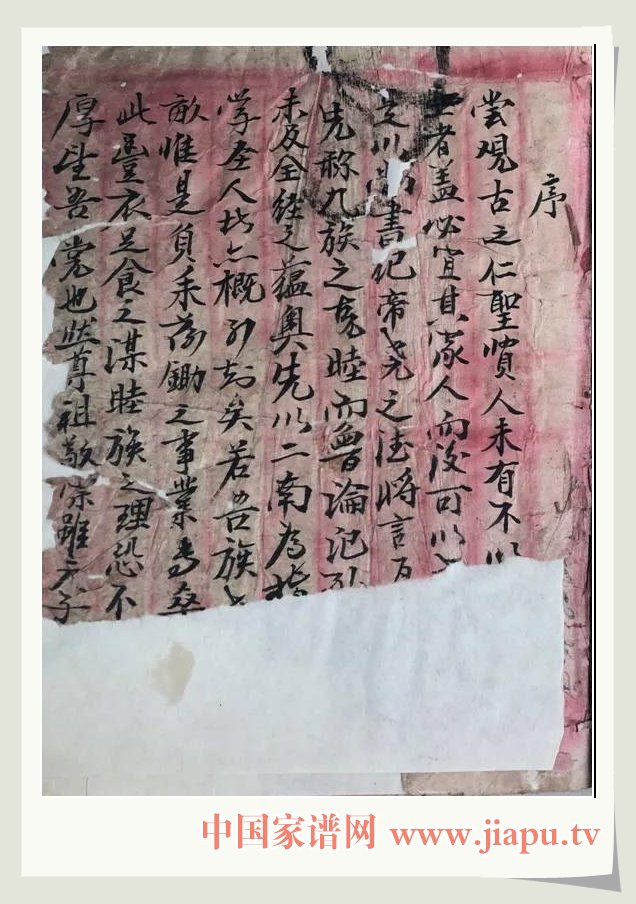 序
嘗观古之仁聖贤人未有不以
者盖必宜其家人而後可以
是以尚書纪帝尧之德将言
先称九族之克睦而魯論記
未及全经之蕴奥先以二南為
学圣人於概可知矣若吾族
畝惟是負耒荷鋤之事業
此豈衣足食之谋睦族之理恐不
厚望吾党也然尊祖敬宗雖
中国家谱网 www.jiapu.tv